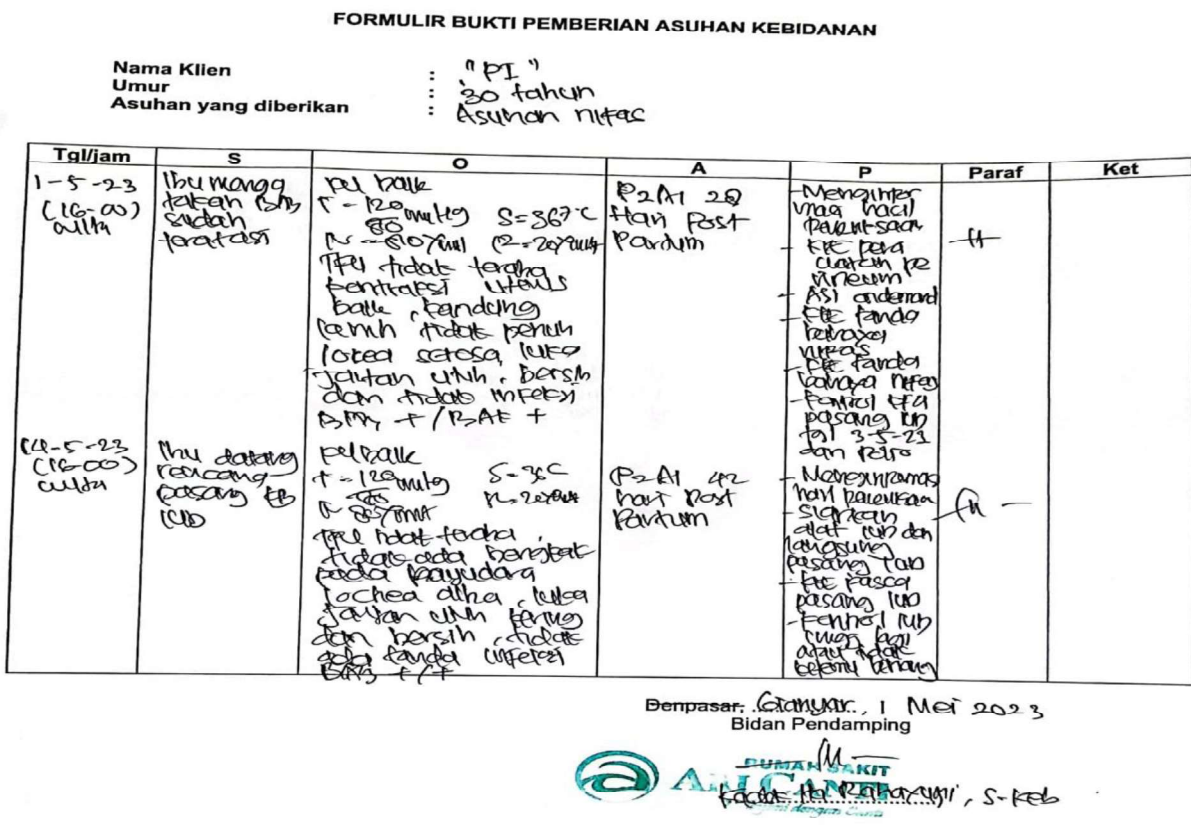 FORMULIR BUKTI PEMBERIAN ASUHAN KEBIDANAN
Nama Klien : "PI"
Umur : 30 tahun
Asuhan yang diberikan : Asuhan nifas
Tgl/jam S O A P Paraf Ket
1-5-23
(16-00)
Ibu menga
takan BAB
sudah
teratasi
KU baik
T = 120
80 mmHg S = 367°C
TFU tidak teraba
kontraksi uterus
baik, kandung
kemih tidak penuh
lokea serosa, luka
jaitan utuh, bersih
dan tidak infeksi
BAB + / BAK +
P2A1 28
Hari Post
Partum
- Menginfor
masi hasil
pemeriksaan
- KIE pera
watan pe
rineum
- ASI ondemand
- KIE tanda
bahaya
nifas
- KIE tanda
bahaya nifas
- Kontrol
pasang IUD
tgl 3-5-23
dan
-5-23
(16-00)
Ibu datang
rencana
pasang KB
IUD
KU baik
T = 120 mmHg S = 36 C
TFU tidak teraba,
tidak ada bengkak
pada payudara
lochea alba, luka
jaitan utuh kering
dan bersih, tidak
ada tanda infeksi
+/+
P2A1 42
hari Post
Partum
- Menginformasi
hasil pemeriksaan
- Siapkan
alat IUD dan
langsung
pasang IUD
- KIE pasca
pasang IUD
- Kontrol IUD
atau tidak
ketemu benang
Denpasar, Gianyar, 1 Mei 2023
Bidan Pendamping
RUMAH SAKIT
ARI CANTI
Rahayuni, S.Keb